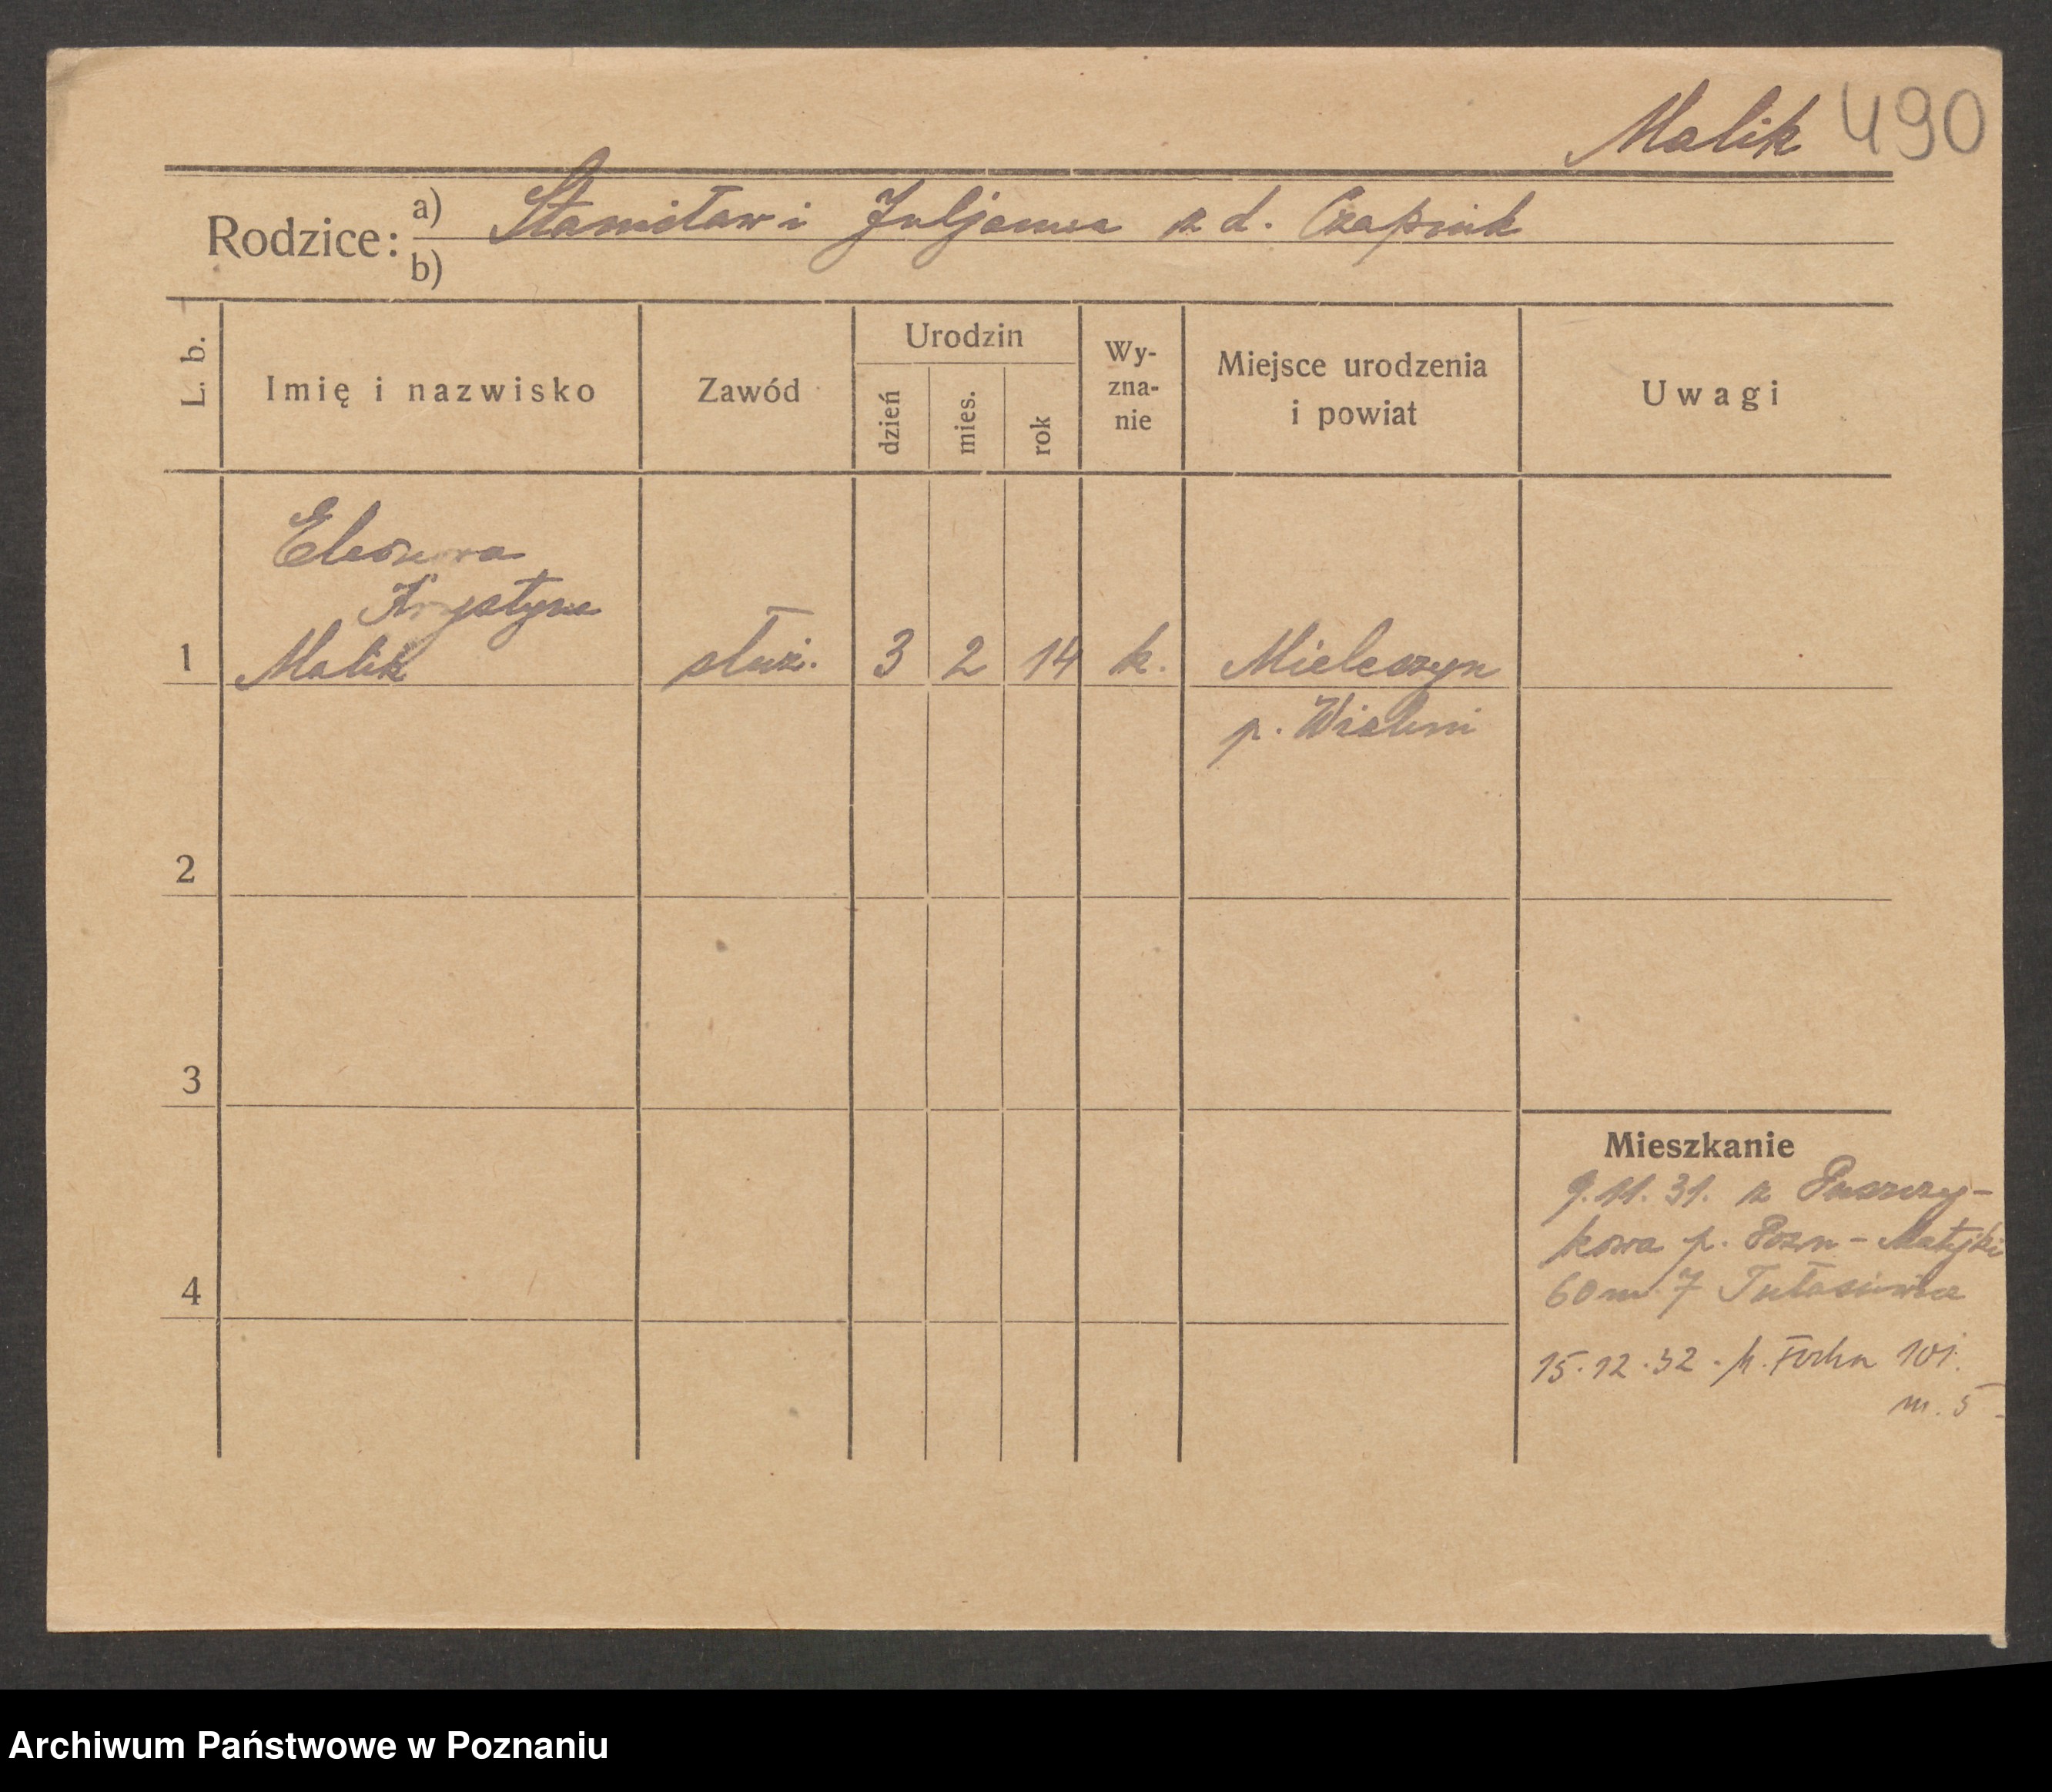 Malik 490
Rodzice: a) Stanisław i Juljanna z d. Czapnik
b)
L. b.
Imię i nazwisko
Zawód
Urodzin
dzień
mies.
rok
Wy-
zna-
nie
Miejsce urodzenia
i powiat
Uwagi
Eleonora
Krystyna
1 Malik służ. 3 2 14 k. Mieleszyn
p. Wieluń
2
3
4
Mieszkanie
9.11.31. z Puszczy-
kowa p. Pozn - Matejki
60 m 7
15.12.32. M. Focha 101.
m. 5
Archiwum Państwowe w Poznaniu